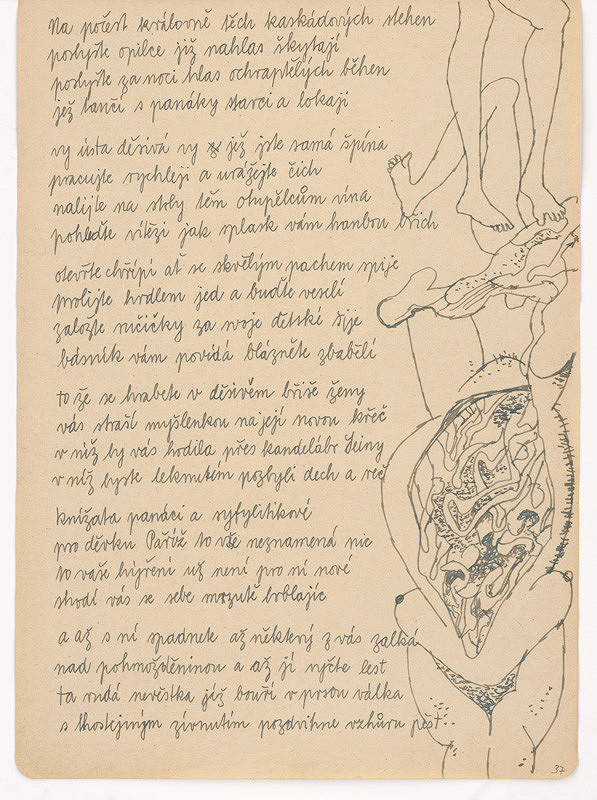 Na počest královně těch kaskádových stehen
poslyšte opilce již nahlas škytají
poslyšte za noci hlas ochraptělých běhen
jež tančí s panáky starci a lokaji
vy ústa děsivá vy jež jste samá špína
pracujte rychleji a urážejte čich
nalijte na stoly těm otupělcům vína
pohleďte vítězi jak splask vám hanbou břich
otevřte chřípí ať se skvělým pachem spije
prolijte hrdlem jed a buďte veselí
založte ručičky za svoje dětské šíje
básník vám povídá blázněte zbabělí
to že se hrabete v děsivém břiše ženy
vás straší myšlenkou na její novou křeč
v níž by vás hodila přes kandelábr Seiny
v níž byste leknutím pozbyli dech a řeč
knížata panáci a syfylitikové
pro děvku Paříž to vše neznamená nic
to vaše hýření už není pro ni nové
shodí vás se sebe mrzutě brblajíc
a až s ní spadnete až některý z vás zalká
nad pohmožděninou a až jí vyčte lest
ta rudá nevěstka jíž bouří v prsou válka
s lhostejným zívnutím pozdvihne vzhůru pěst..
37